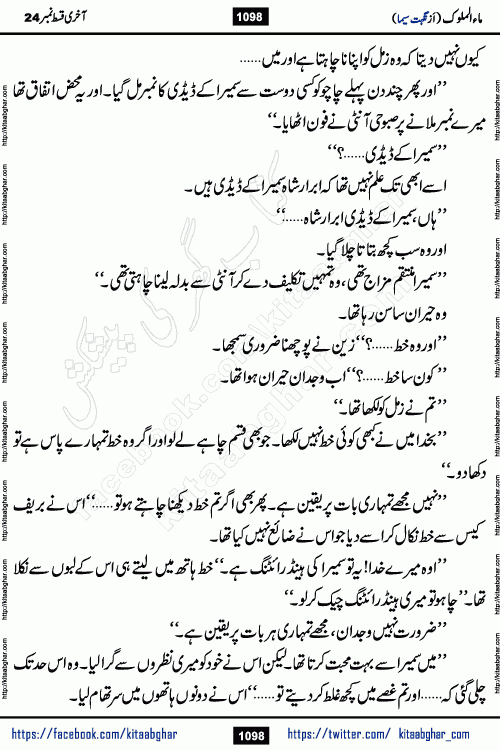 ماء الملوک (از نگہت سیما) 1098 آخری قسط نمبر 24
کیوں نہیں دیتا کہ وہ زمل کو اپنانا چاہتا ہے اور میں……
’’اور پھر چند دن پہلے چاچو کو کسی دوست سے سمیرا کے ڈیڈی کا نمبر مل گیا۔ اور یہ محض اتفاق تھا
میرے نمبر ملانے پر صبوحی آنٹی نے فون اٹھایا۔‘‘
’’سمیرا کے ڈیڈی……؟‘‘
اسے ابھی تک علم نہیں تھا کہ ابرار شاہ سمیرا کے ڈیڈی ہیں۔
’’ہاں، سمیرا کے ڈیڈی ابرار شاہ……‘‘
اور وہ سب کچھ بتاتا چلا گیا۔
’’سمیرا منتقم مزاج تھی، وہ تمہیں تکلیف دے کر آنٹی سے بدلہ لینا چاہتی تھی۔‘‘
وہ حیران سا سن رہا تھا۔
’’اور وہ خط……؟‘‘ زین نے پوچھنا ضروری سمجھا۔
’’کون سا خط……؟‘‘ اب وجدان حیران ہوا تھا۔
’’تم نے زمل کو لکھا تھا۔‘‘
’’بخدا میں نے کبھی کوئی خط نہیں لکھا۔ جو بھی قسم چاہے لے لو اور اگر وہ خط تمہارے پاس ہے تو
دکھا دو۔‘‘
’’نہیں مجھے تمہاری بات پر یقین ہے۔ پھر بھی اگر تم خط دیکھنا چاہتے ہو تو……‘‘ اس نے بریف
کیس سے خط نکال کر اسے دیا جو اس نے ضائع نہیں کیا تھا۔
’’اوہ میرے خدا! یہ تو سمیرا کی ہینڈ رائٹنگ ہے۔‘‘ خط ہاتھ میں لیتے ہی اس کے لبوں سے نکلا
تھا۔ ’’چاہو تو میری ہینڈ رائٹنگ چیک کر لو۔‘‘
’’ضرورت نہیں وجدان، مجھے تمہاری ہر بات پر یقین ہے۔‘‘
’’میں سمیرا سے بہت محبت کرتا تھا۔ لیکن اس نے خود کو میری نظروں سے گرا لیا۔ وہ اس حد تک
چلی گئی کہ……اور تم غصے میں کچھ غلط کر دیتے تو……‘‘ اس نے دونوں ہاتھوں میں سر تھام لیا۔
https://facebook.com/kitaabghar 1098 https://twitter.com/ kitaabghar_com